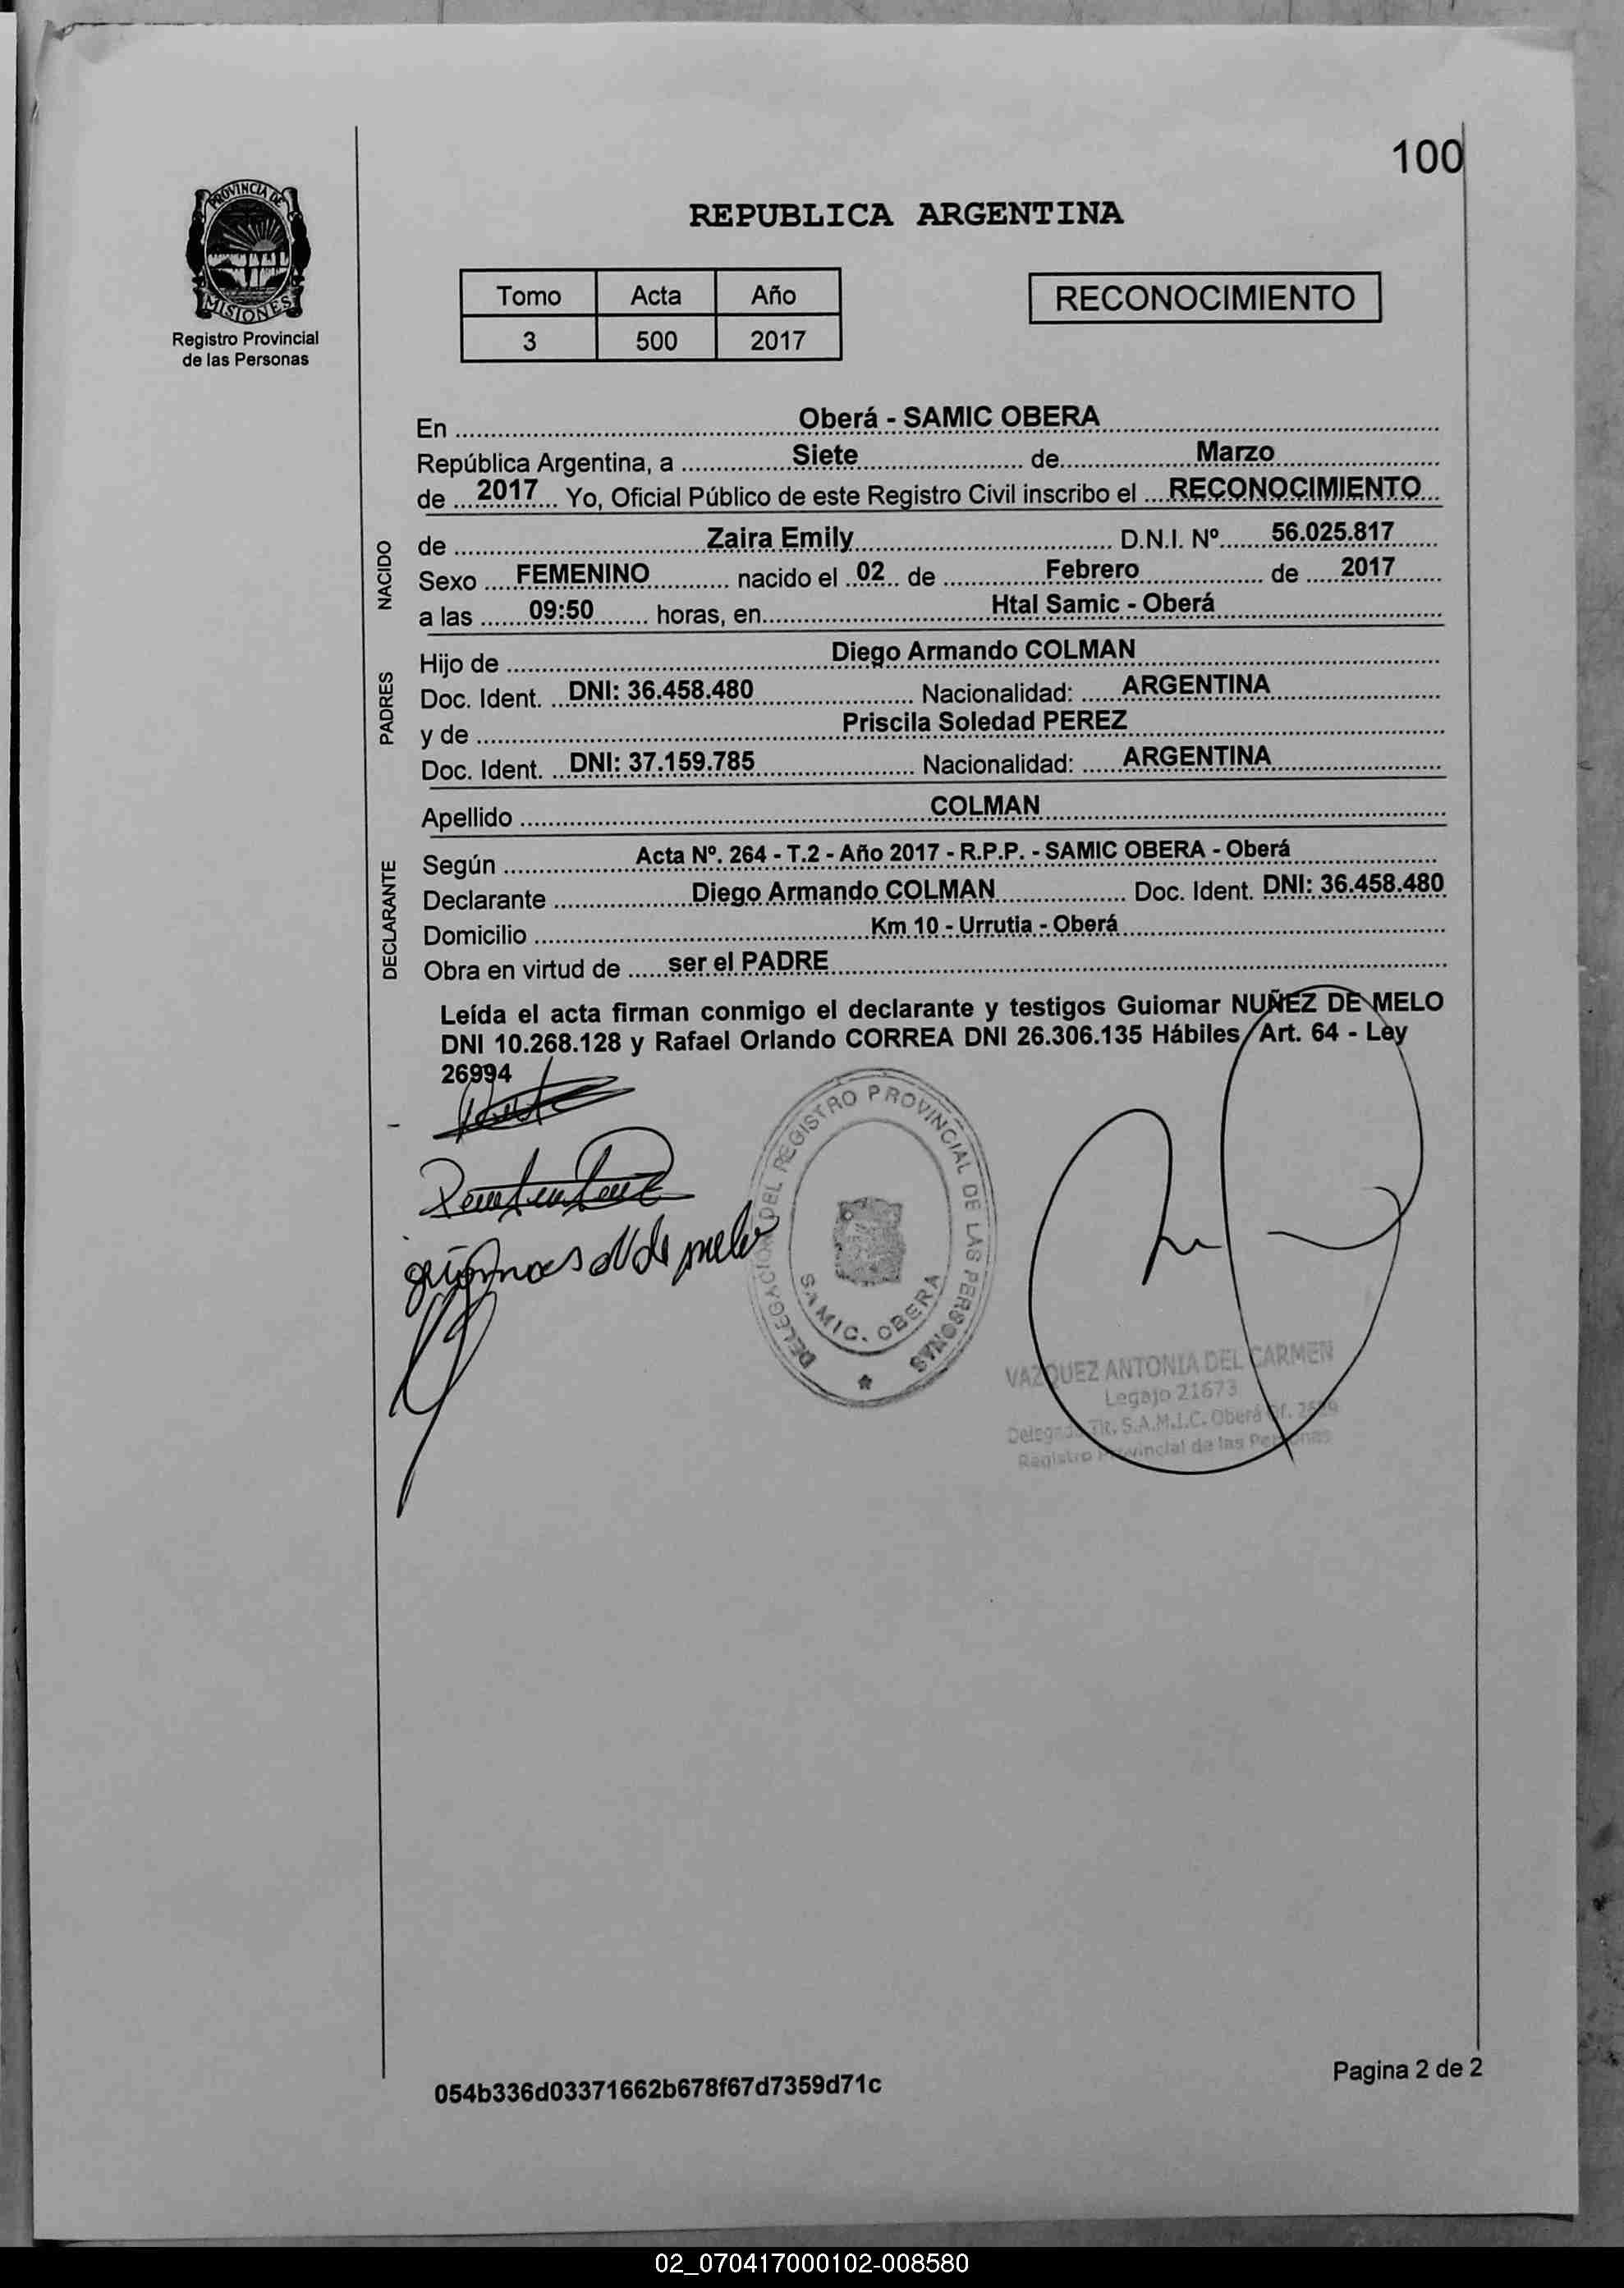 100
PROVINCIA DE
MISIONES
Registro Provincial
de las Personas
REPUBLICA ARGENTINA
Tomo Acta Año
3 500 2017
RECONOCIMIENTO
En Oberá - SAMIC OBERA
República Argentina, a Siete de Marzo
de 2017 Yo, Oficial Público de este Registro Civil inscribo el RECONOCIMIENTO
NACIDO
de Zaira Emily D.N.I. Nº 56.025.817
Sexo FEMENINO nacido el 02 de Febrero de 2017
a las 09:50 horas, en Htal Samic - Oberá
PADRES
Hijo de Diego Armando COLMAN
Doc. Ident. DNI: 36.458.480 Nacionalidad: ARGENTINA
y de Priscila Soledad PEREZ
Doc. Ident. DNI: 37.159.785 Nacionalidad: ARGENTINA
Apellido COLMAN
DECLARANTE
Según Acta Nº. 264 - T.2 - Año 2017 - R.P.P. - SAMIC OBERA - Oberá
Declarante Diego Armando COLMAN Doc. Ident. DNI: 36.458.480
Domicilio Km 10 - Urrutia - Oberá
Obra en virtud de ser el PADRE
Leída el acta firman conmigo el declarante y testigos Guiomar NUÑEZ DE MELO
DNI 10.268.128 y Rafael Orlando CORREA DNI 26.306.135 Hábiles Art. 64 - Ley
26994
DELEGACION DEL REGISTRO PROVINCIAL DE LAS PERSONAS
SAMIC. OBERA
VAZQUEZ ANTONIA DEL CARMEN
Legajo 21673
S.A.M.I.C. Oberá
Registro Provincial de las Personas
054b336d03371662b678f67d7359d71c
Pagina 2 de 2
02_070417000102-008580